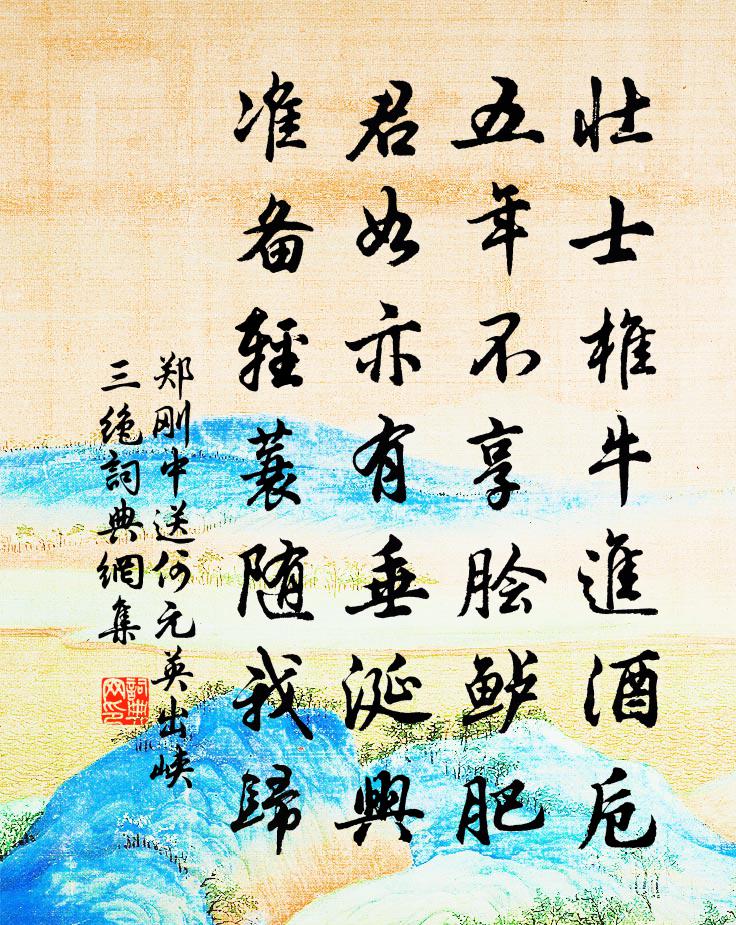 壮士椎牛進酒卮
五年不享脍鲈肥
君如亦有垂涎興
准备輕蓑随我歸
郑刚中送何元英出峡
三絶詞典網集
詞典网印